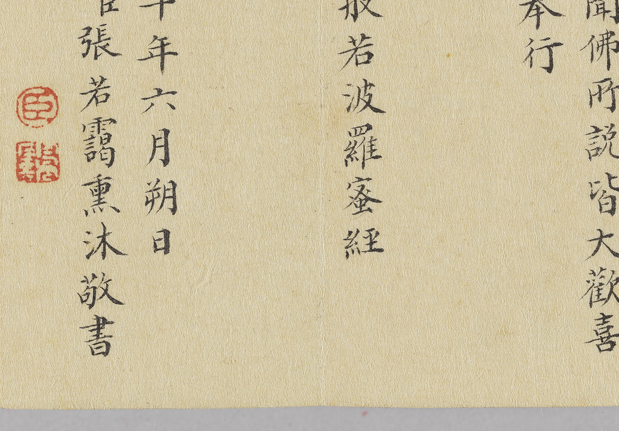 聞佛所説皆大歡喜
奉行
般若波羅蜜經
年六月朔日
臣張若靄熏沐敬書
臣